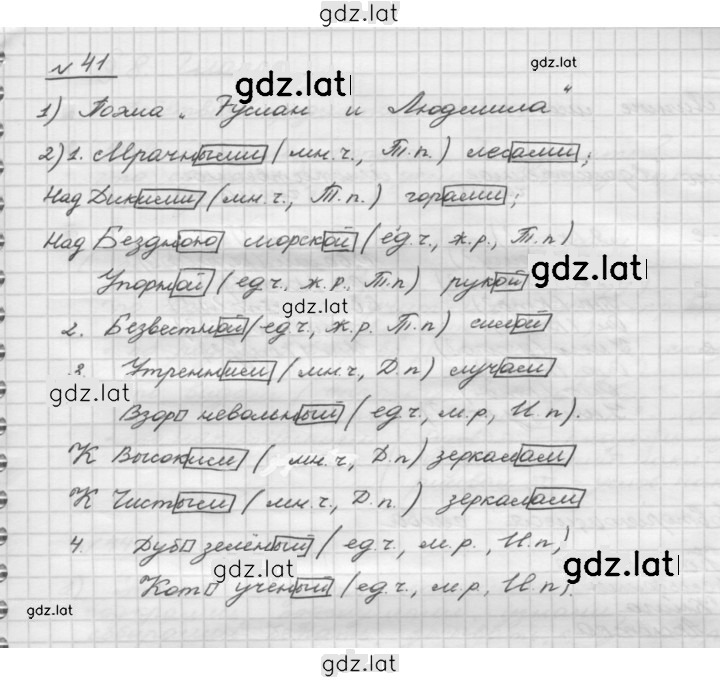 gdz.lat
№ 41
gdz.lat
gdz.lat
1) Поэма „Руслан и Людмила“
2) 1. Мрачными (мн.ч., Т.п.) лесами;
Над Дикими (мн.ч., Т.п.) горами;
Над Бездною морской (ед.ч., ж.р., Т.п)
gdz.lat
Упорной (ед.ч, ж.р., Т.п) рукой
gdz.lat
2. Безвестной (ед.ч., ж.р. Т.п) силой
3. Утренним (мн.ч, Д.п) лучам
gdz.lat
Взор невольный (ед.ч, м.р, И.п).
К Высоким (мн.ч, Д.п) зеркалам
К Чистым (мн.ч., Д.п) зеркалам
4. Дуб зелёный (ед.ч., м.р., И.п,)
gdz.lat
gdz.lat
Кот учёный (ед.ч, м.р, И.п).
gdz.lat
gdz.lat